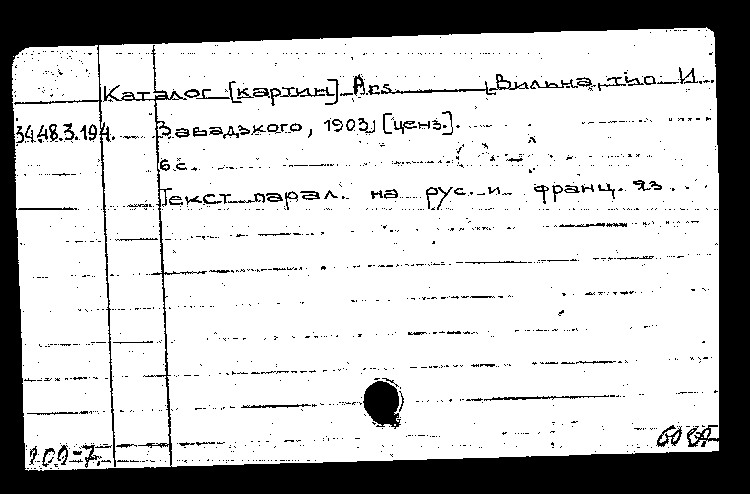 Каталог [картин] Ars. [Вильна, тип. И.
34.48.3.194. Завадзкого, 1903] [ценз.].
6 с.
Текст парал. на рус. и франц. яз.
200-7.